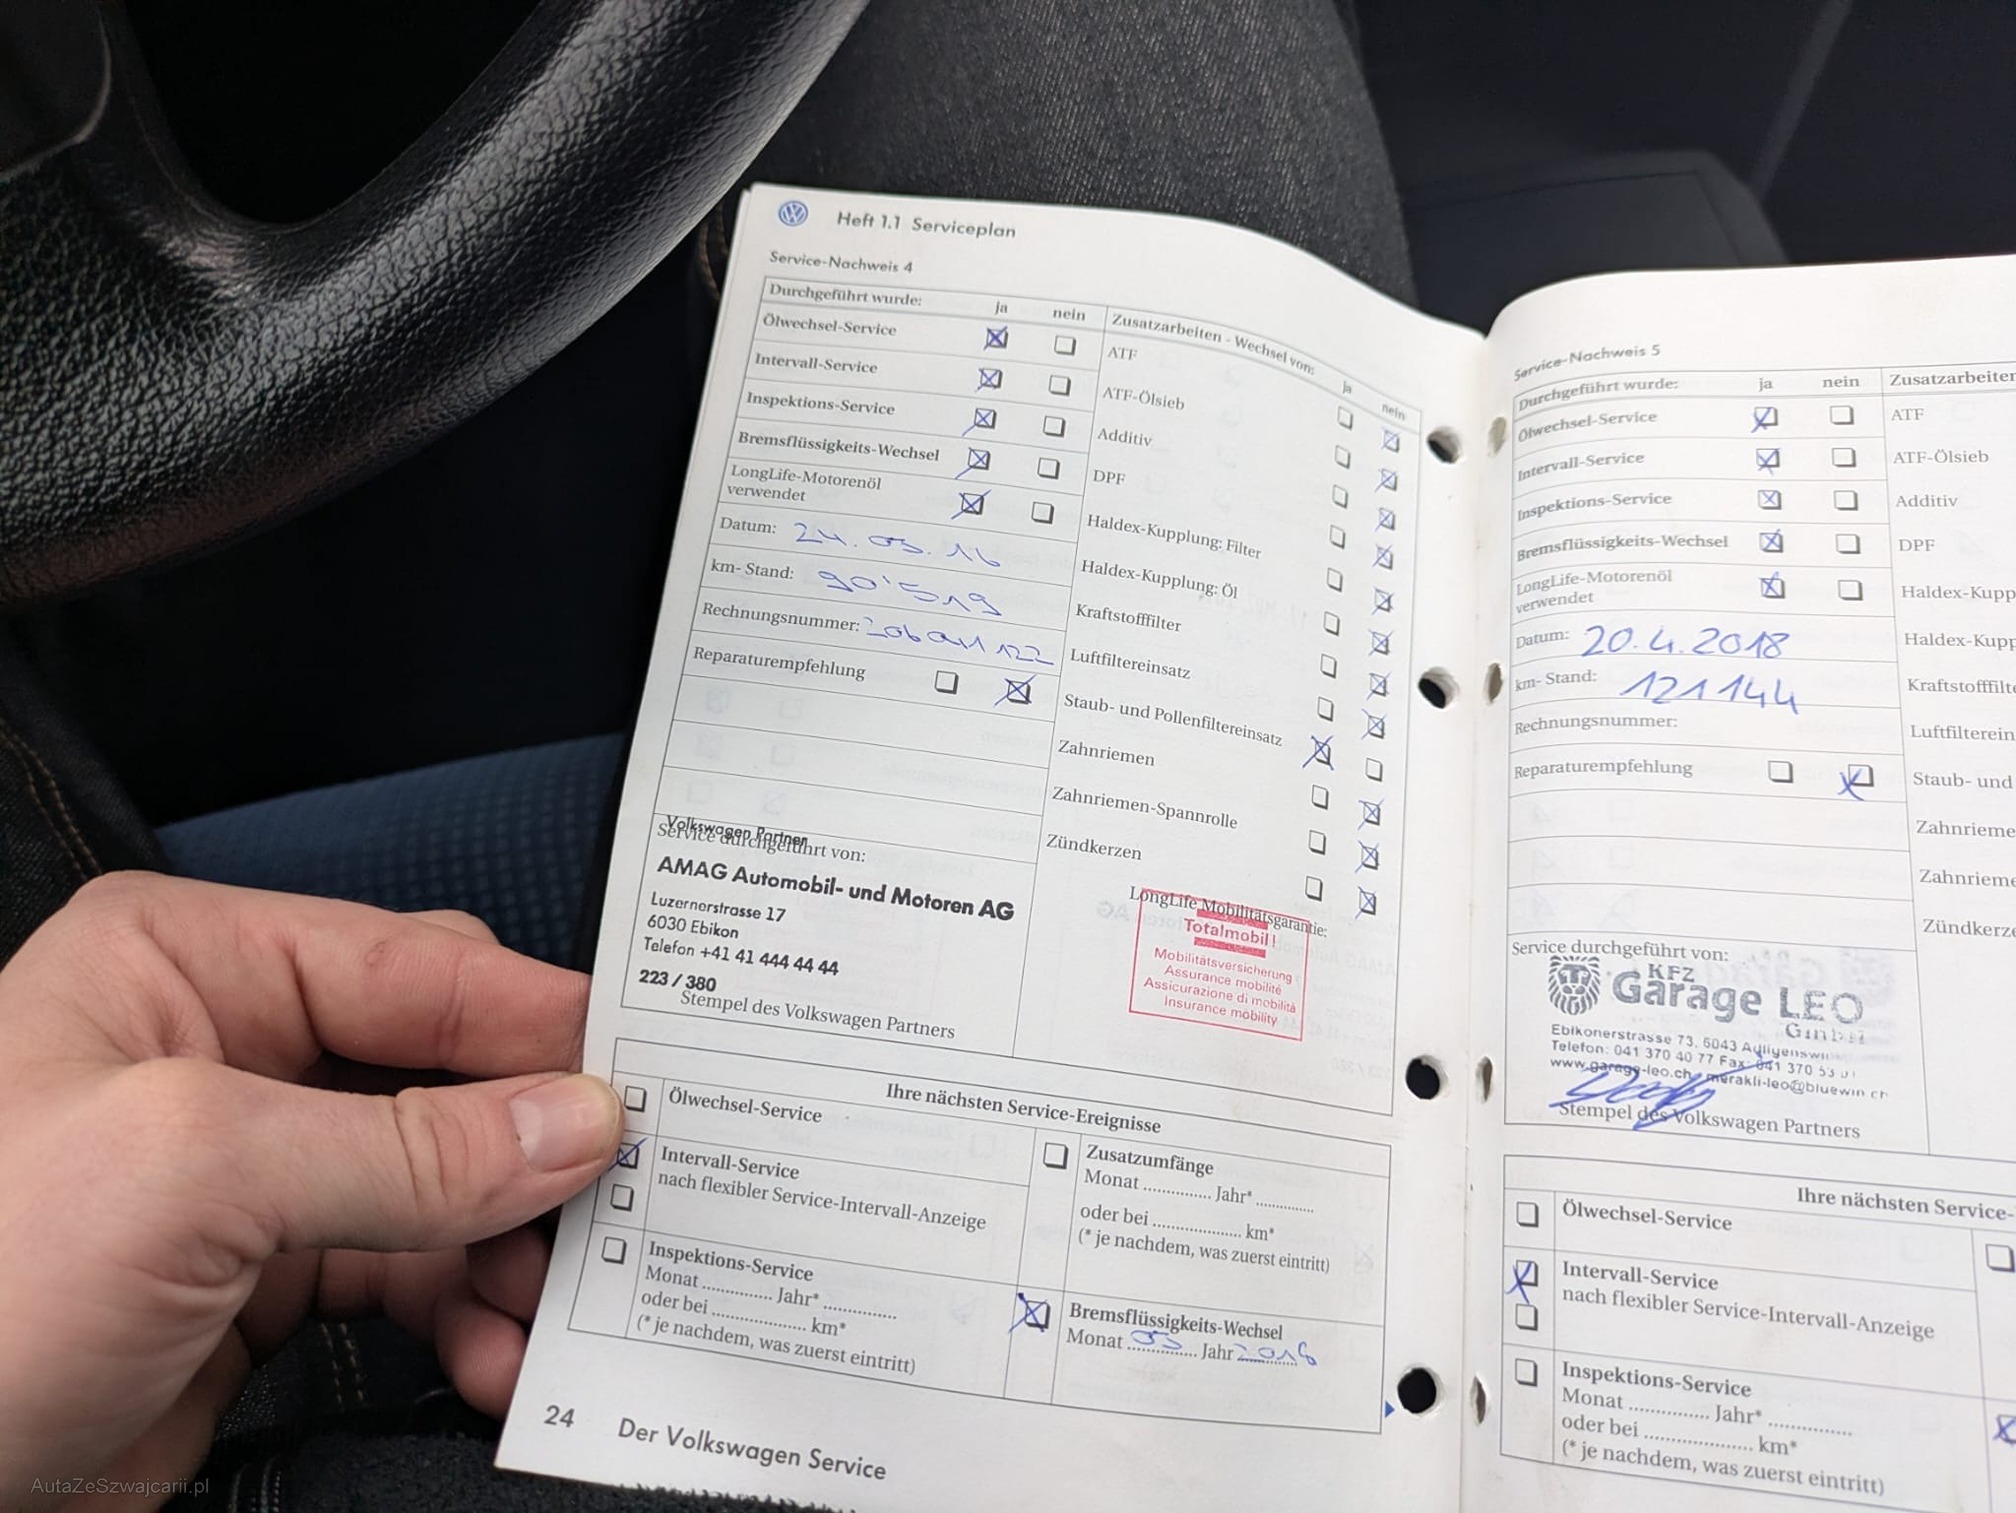 Heft 1.1 Serviceplan
Service-Nachweis 4
Durchgeführt wurde: ja nein
Ölwechsel-Service
Intervall-Service
Inspektions-Service
Bremsflüssigkeits-Wechsel
LongLife-Motorenöl
verwendet
Datum: 24.05.16
km- Stand: 90'519
Rechnungsnummer:
Reparaturempfehlung
Zusatzarbeiten - Wechsel von: ja nein
ATF
ATF-Ölsieb
Additiv
DPF
Haldex-Kupplung: Filter
Haldex-Kupplung: Öl
Kraftstofffilter
Luftfiltereinsatz
Staub- und Pollenfiltereinsatz
Zahnriemen
Zahnriemen-Spannrolle
Zündkerzen
Volkswagen Partner
Service durchgeführt von:
AMAG Automobil- und Motoren AG
Luzernerstrasse 17
6030 Ebikon
Telefon +41 41 444 44 44
223 / 380
Stempel des Volkswagen Partners
LongLife Mobilitätsgarantie:
Totalmobil!
Mobilitätsversicherung
Assurance mobilité
Assicurazione di mobilità
Insurance mobility
Ihre nächsten Service-Ereignisse
Ölwechsel-Service
Intervall-Service
nach flexibler Service-Intervall-Anzeige
Inspektions-Service
Monat ............... Jahr* ...............
oder bei .................... km*
(* je nachdem, was zuerst eintritt)
Zusatzumfänge
Monat ............... Jahr* ...............
oder bei .................... km*
(* je nachdem, was zuerst eintritt)
Bremsflüssigkeits-Wechsel
Monat 05 Jahr 2018
24 Der Volkswagen Service
Service-Nachweis 5
Durchgeführt wurde: ja nein
Ölwechsel-Service
Intervall-Service
Inspektions-Service
Bremsflüssigkeits-Wechsel
LongLife-Motorenöl
verwendet
Datum: 20.4.2018
km- Stand: 121144
Rechnungsnummer:
Reparaturempfehlung
Zusatzarbeiten
ATF
ATF-Ölsieb
Additiv
DPF
Haldex-Kupp
Haldex-Kupp
Kraftstofffilte
Luftfilterein
Staub- und
Zahnrieme
Zahnrieme
Zündkerze
Service durchgeführt von:
KFZ
Garage LEO
GmbH
Ebikonerstrasse 73, 6043
Telefon: 041 370 40 77 Fax: 041 370
www.garage-leo.ch merakli-leo@bluewin.ch
Stempel des Volkswagen Partners
Ihre nächsten Service-
Ölwechsel-Service
Intervall-Service
nach flexibler Service-Intervall-Anzeige
Inspektions-Service
Monat ............... Jahr* ...............
oder bei .................... km*
(* je nachdem, was zuerst eintritt)
AutaZeSzwajcarii.pl